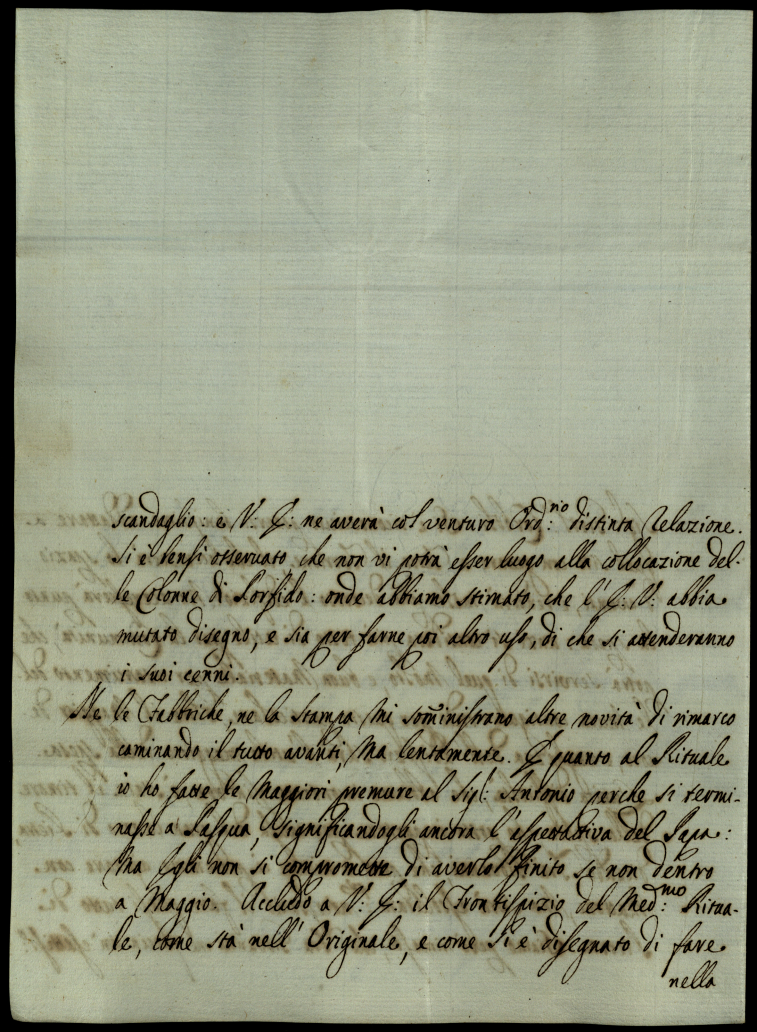 scandaglio: e V: E: ne averà col venturo Ord:no distinta relazione.
Si è bensi osservato, che non vi potrà esser luogo alla collocazione del-
le Colonne di Porfido: onde abbiamo stimato, che l'E: V: abbia
mutato disegno, e sia per farne poi altro uso, di che si attenderanno
i suoi cenni.
Ne le Fabbriche, ne la stampa mi somĩnistrano altre novità di rimarco
caminando il tutto avanti, ma lentamente. E quanto al Rituale
io ho fatte le maggiori premure al Sigr: Antonio perche si termi-
nasse a Pasqua, significandogli ancora l'espettativa del Papa:
ma Egli non si compromette di averlo finito se non dentro
a Maggio. Accludo a V: E: il Frontispizio del Med:mo Ritua-
le, come stà nell'Originale, e come si è disegnato di fare
nella